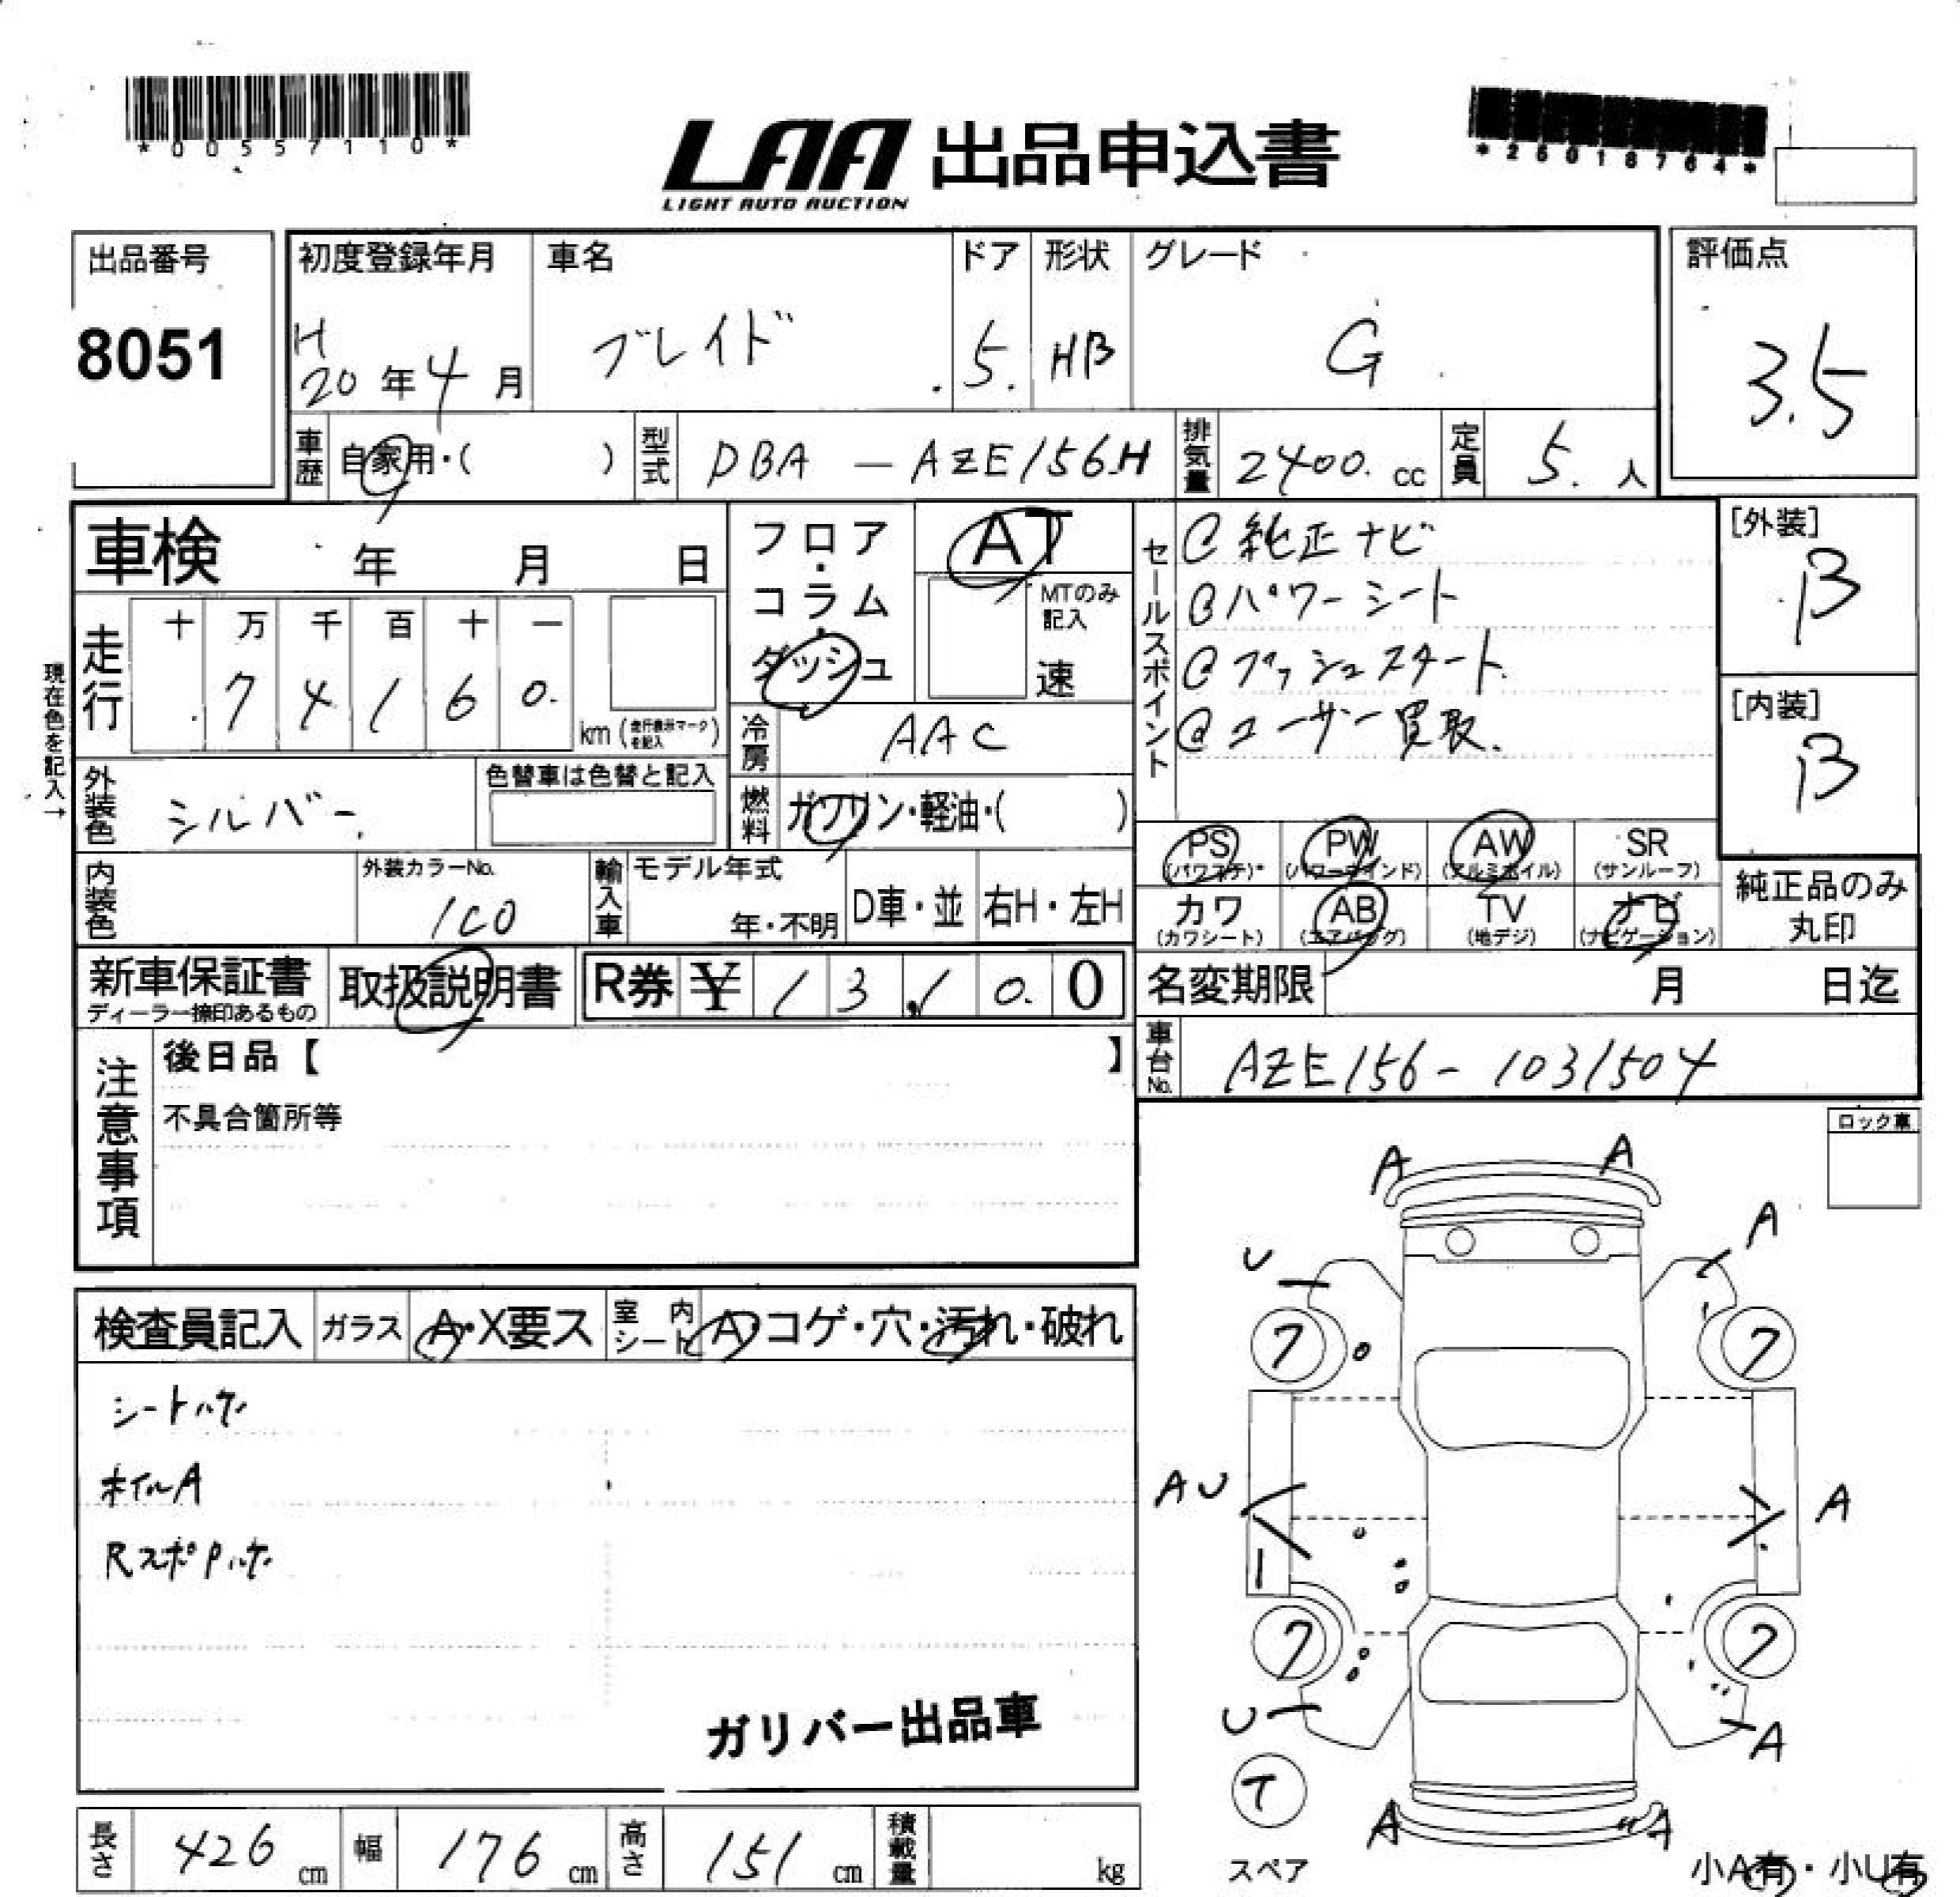 *00557110*
LAA 出品申込書
LIGHT AUTO AUCTION
*26018764*
出品番号
8051
初度登録年月
H
20年4月
車名
ブレイド
ドア
5.
形状
HB
グレード
G
評価点
3.5
車歴
自家用・( )
型式
DBA - AZE156H
排気量
2400. cc
定員
5. 人
車検 年 月 日
現在色を記入→
走行
十 万 千 百 十 一
7 4 1 6 0.
km (走行表示マークを記入)
フロア・コラム・ダッシュ
AT
MTのみ記入
速
冷房
AAC
外装色
シルバー
色替車は色替と記入
燃料
ガソリン・軽油・( )
内装色
外装カラーNo.
1C0
輸入車
モデル年式
年・不明
D車・並
右H・左H
セールスポイント
@純正ナビ
@パワーシート
@プッシュスタート
@ユーザー買取
[外装]
B
[内装]
B
PS
(パワステ)
PW
(パワーウインド)
AW
(アルミホイル)
SR
(サンルーフ)
カワ
(カワシート)
AB
(エアバック)
TV
(地デジ)
ナビ
(ナビゲーション)
純正品のみ
丸印
新車保証書
ディーラー捺印あるもの
取扱説明書
R券 ¥ 1 3 1 0. 0
名変期限 月 日迄
車台No.
AZE156-1031504
注意事項
後日品【 】
不具合箇所等
ロック車
検査員記入
ガラス
A・X要ス
室内シート
A・コゲ・穴・汚れ・破れ
ホイルA
ガリバー出品車
A A
U A
7 7
AU A
7 7
U A
T
スペア
A A
小A有・小U有
長さ
426 cm
幅
176 cm
高さ
151 cm
積載量
kg